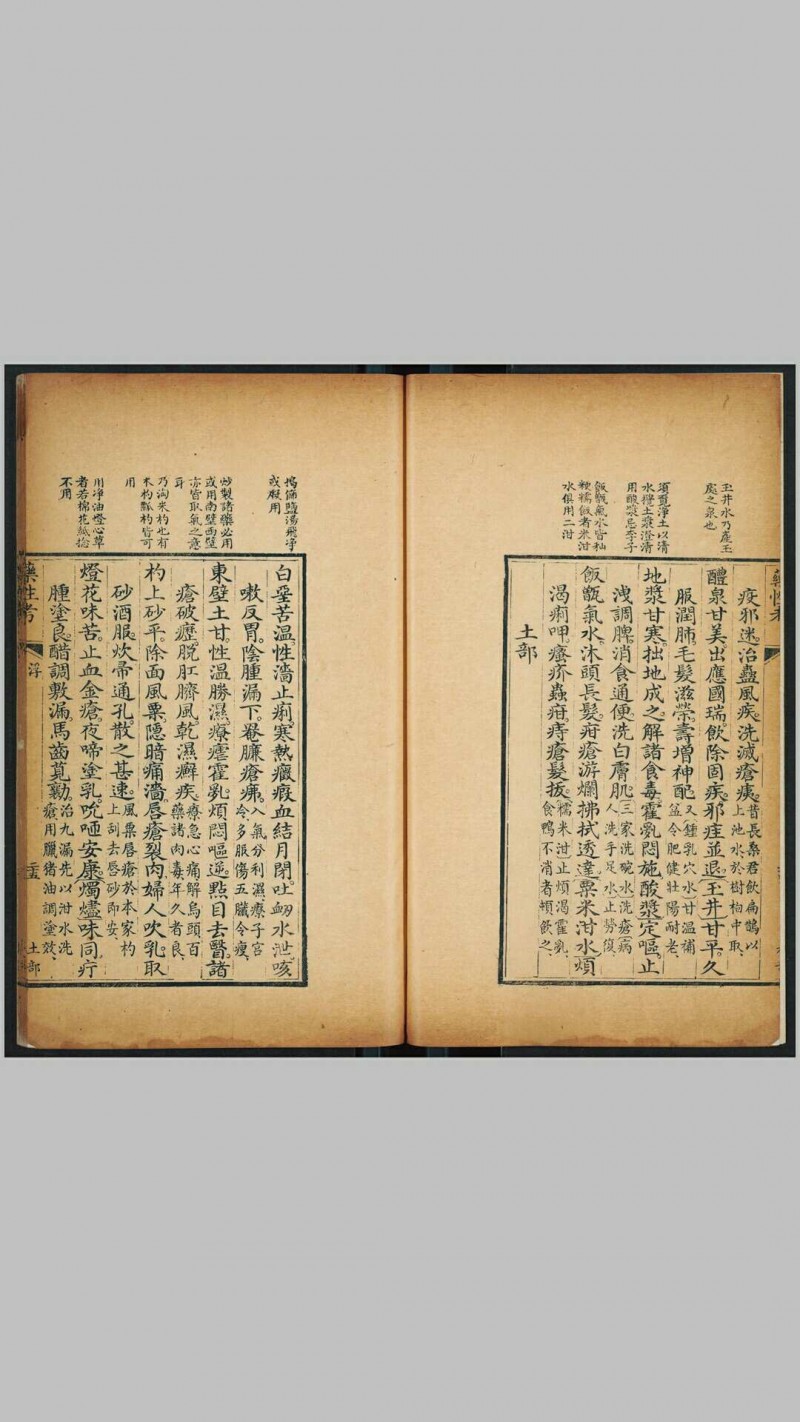 玉井水乃產玉
處之泉也
須買淨土以清
水攪土漿澄清
用酸漿忌李子
飯甑氣水皆秈
粳糯飯者米泔
水俱用二泔
疫邪迷。治蠱風疾。洗滅瘡痍。昔長桑君飲扁鵲以
上池水於樹杓中取、
醴泉甘美出應國瑞。飲除固疾。邪疰並退。玉井甘平。久
服潤肺。毛髮滋榮。壽增神配又鍾乳穴水甘溫補
益令肥健壯陽耐老、
地漿甘寒。拙地成之解諸食毒。霍亂悶施酸漿定嘔。止
洩調脾。消食通便。洗白膚肌三家洗碗水洗瘡病
人洗手足水止勞復、
飯甑氣水。沐頭長髮。疳瘡游爛拂拭透達。粟米泔水。煩
渴痢呷。瘡疥蟲疳。痔瘡髮拔。糯米泔止煩渴霍乳、
食鴨不消者頓飲之、
土部
搗篩鹽湯飛淨
或煅用
炒製諸藥必用
或用南壁西壁
亦皆取氣之意
耳
乃淘米杓也有
木杓瓢杓皆可
用
川淨油燈心草
者若棉花紙捻
不用
白堊苦溫。性濇止痢。寒熱癥瘕血結月閉。吐衂水泄。咳
嗽反胃。陰腫漏下。卷臁瘡疿。入氣分利濕療子宮
冷、多服傷五臟令瘦、
東壁土甘。性溫勝濕。療瘧霍亂。煩悶嘔逆。點目去醫。諸
瘡破癧。脫肛臍風。乾濕癬疾。療急心痛解烏頭百
藥諸肉毒、年久者良、
杓上砂平。除面風粟。隱暗痛濇。唇瘡裂肉。婦人吹乳。取
砂酒服炊帚通孔。散之甚速。風粟唇瘡於本家杓
上刮去唇砂即安、
燈花味苦。止血金瘡。夜啼塗乳。吮咂安康。燭燼味同。疔
腫塗良。醋調敷漏。馬齒莧勷。治九漏先以泔水洗
瘡用臘猪油調塗效、
藥性考
浮
土部